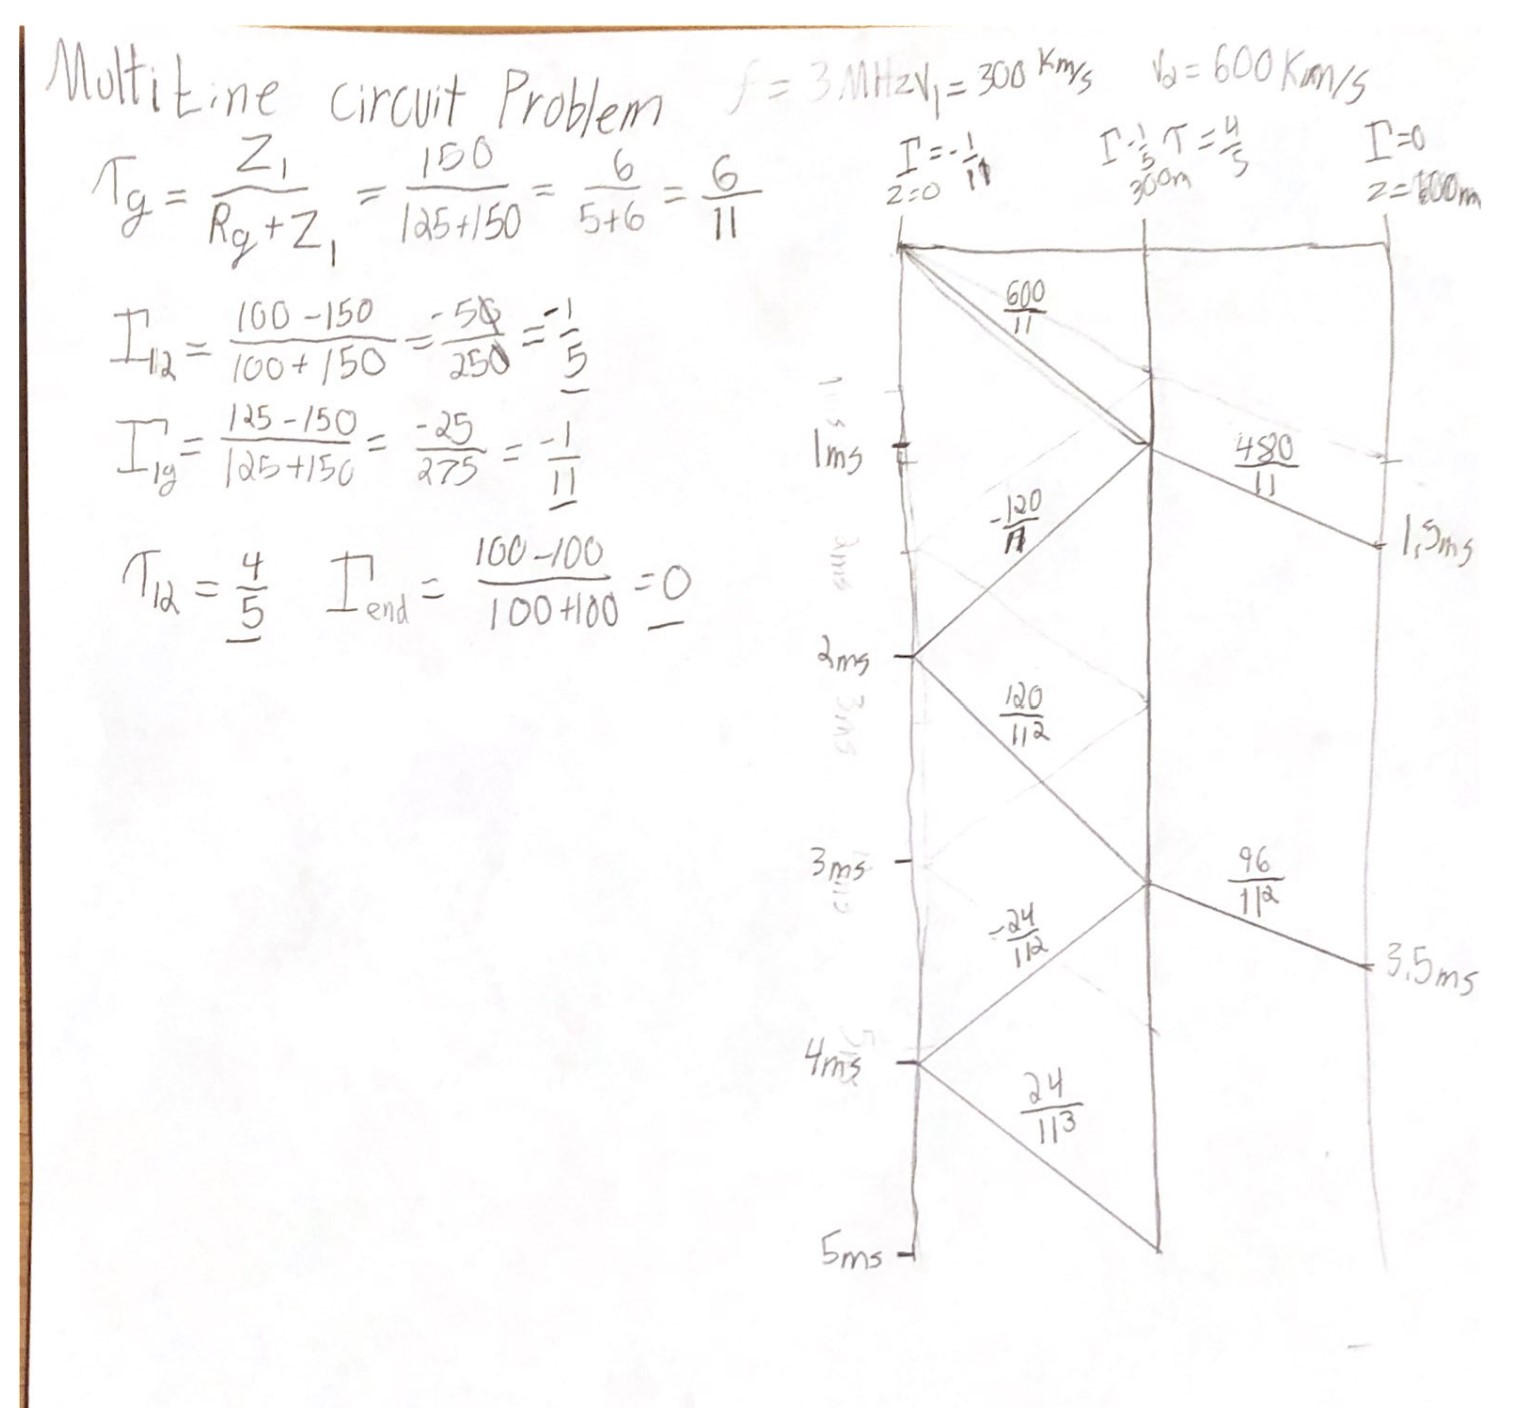 Multi Line circuit Problem f = 3 MHz V₁ = 300 Km/s V₂ = 600 Km/s
τg = Z₁/(Rg + Z₁) = 150/(125+150) = 6/(5+6) = 6/11
Γ₁₂ = (100 - 150)/(100 + 150) = -50/250 = -1/5
Γ₁g = (125 - 150)/(125 + 150) = -25/275 = -1/11
τ₁₂ = 4/5 Γend = (100 - 100)/(100 + 100) = 0
Γ = -1/11 Γ -1/5 τ = 4/5 Γ = 0
z = 0 300m
600/11
1ms
480/11
-120/11
1.5ms
2ms
120/11²
3ms
96/11²
-24/11²
3.5ms
4ms
24/11³
5ms